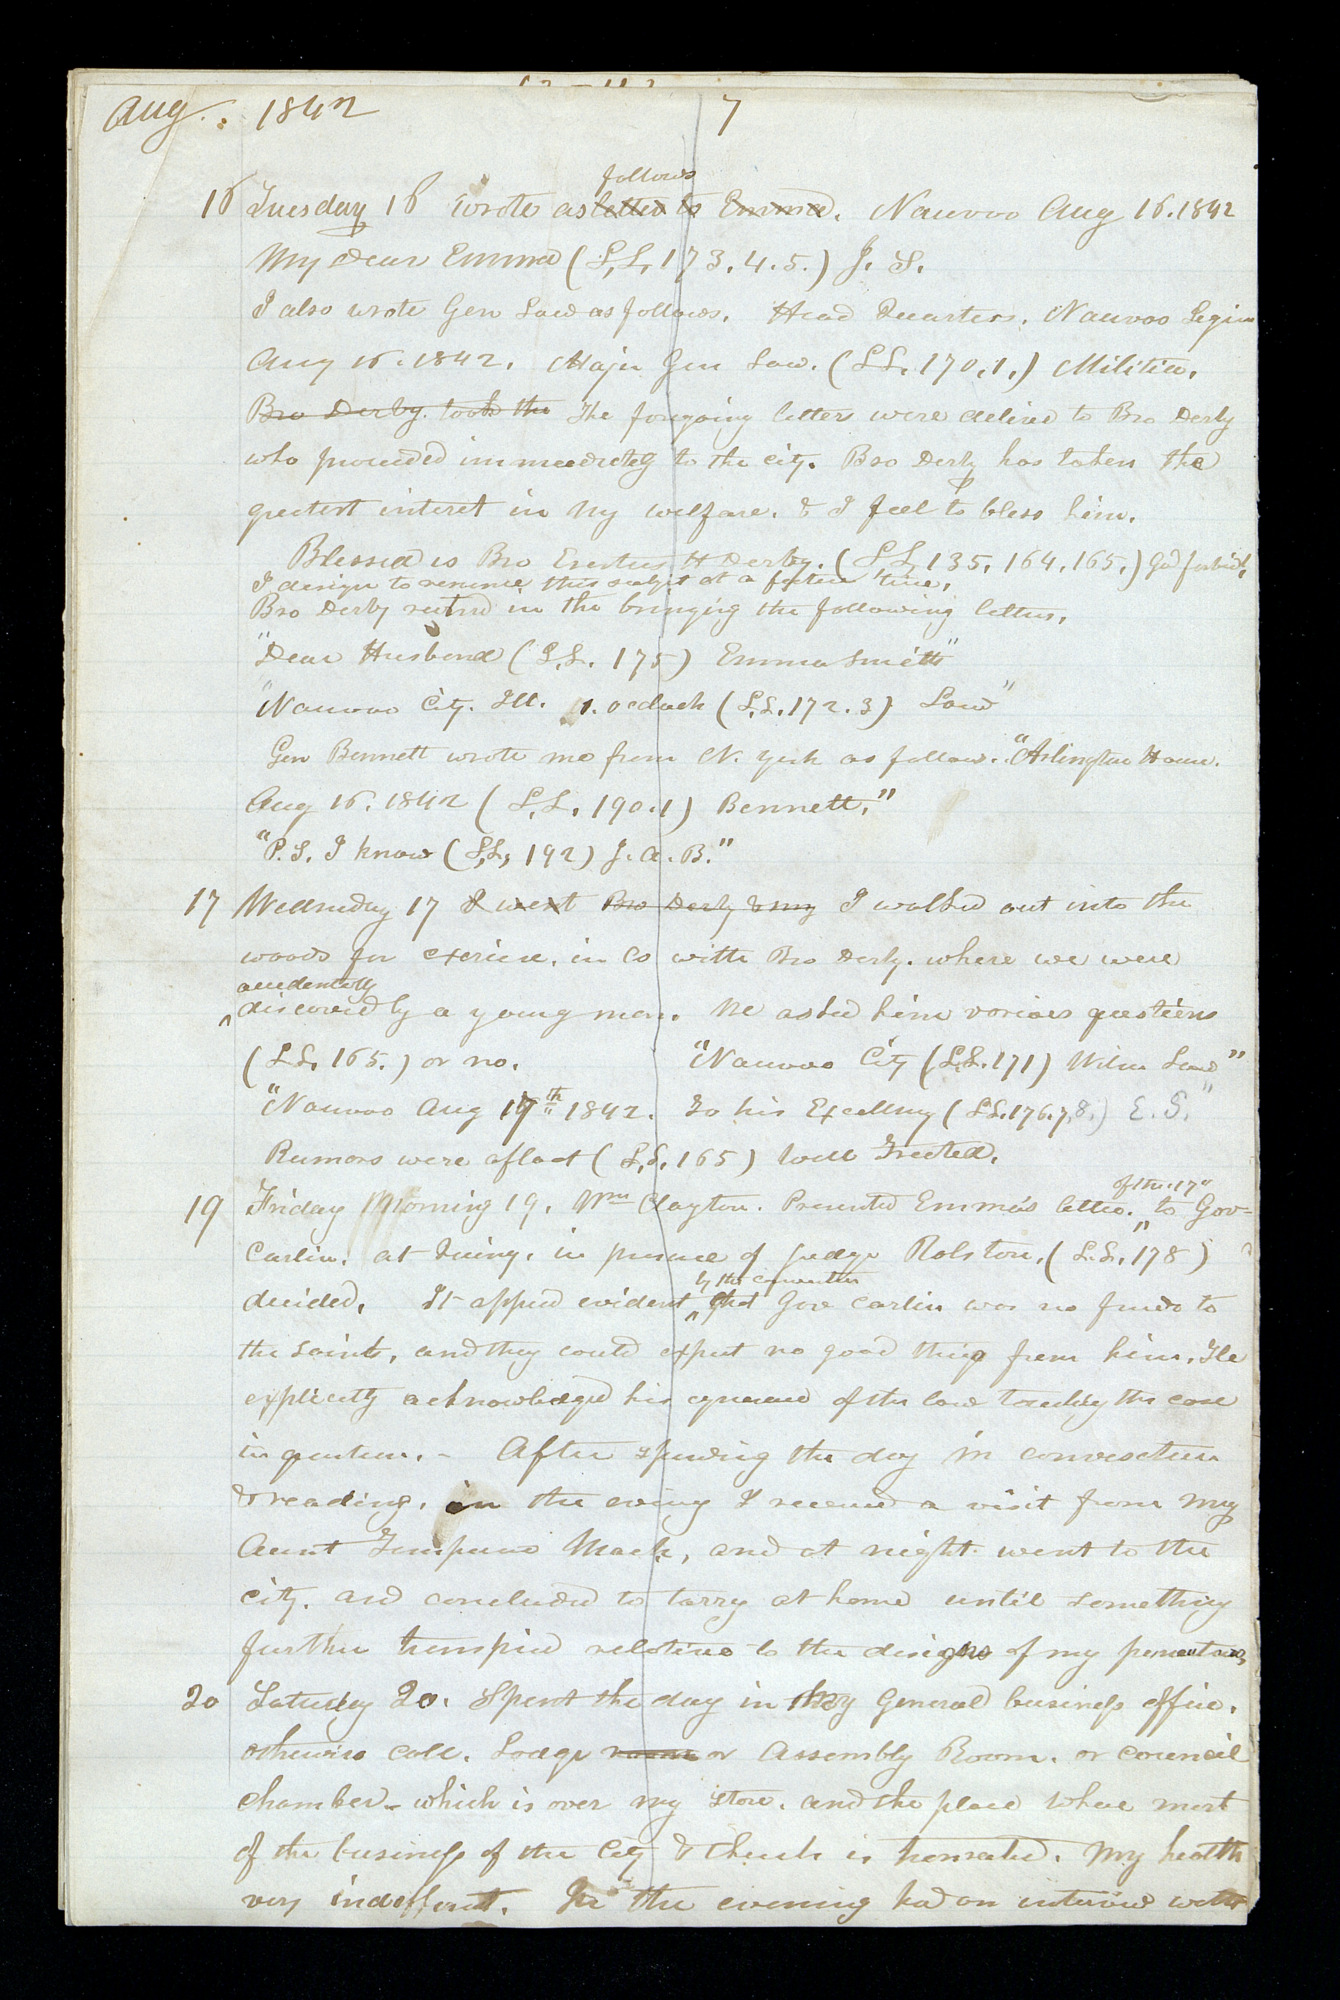 Aug. : 1842 7
follows
16 Tuesday 16 wrote as letter to Emma. Nauvoo Aug 16. 1842
My Dear Emma (L, L, 173. 4. 5.) J. S.
I also wrote Gen Law as follows. Head Quarters. Nauvoo Legion
Aug 16. 1842. Major Gen Law. (L L. 170, 1.) Militia.
Bro Derby took the The foregoing letters were delived to Bro Derby
who proceeded immediately to the city. Bro Derby has taken the
greatest interest in my welfare. & I feel to bless him.
Blessed is Bro Erastus H Derby. (L L, 135, 164, 165.) God forbid.
I design to resume this subject at a future time.
Bro Derby returned in the bringing the following letters.
"Dear Husband (L, L. 175) Emma Smith"
"Nauvoo City. Ill. 1. oclock (L, L. 172. 3) Law"
Gen Bennett wrote me from N. York as follows. "Arlington House.
Aug 16. 1842 (L, L. 190. 1) Bennett."
"P. S. I know (L, L, 192) J. A. B."
17 Wednesday 17 I went Bro Derby & my I walked out into the
woods for exercise. in Co with Bro Derby. where we were
accidentally
discovered by a young man. We asked him various questions
(L L. 165.) or no. "Nauvoo City (L, L. 171) Wilson Law"
"Nauvoo Aug 17th 1842. To his Excellency (L L. 176. 7, 8.) E. S."
Rumors were afloat (L, L. 165) well Treated.
of the 17"
19 Friday Morning 19. Wm Clayton. Presented Emma's letter. to Gov-
Carlin. at Quincy. in presence of Judge Ralston. (L. L. 178)
by the conversation
decided. It appeared evident that Gov Carlin was no friend to
the saints, and they could expect no good things from him. He
explicitly acknowledged his ignorance of the law touching the case
in question. - After spending the day in conversation
& reading. in the evening I received a visit from my
Aunt Temperance Mack, and at night went to the
city. and concluded to tarry at home until something
further transpired relative to the designs of my persecutors.
20 Saturday 20. Spent the day in my General business office.
otherwise call. Lodge room or Assembly Room. or council
chamber - which is over my store. and the place where most
of the business of the City & Church is transacted. My health
very indifferent. In the evening had an interview with